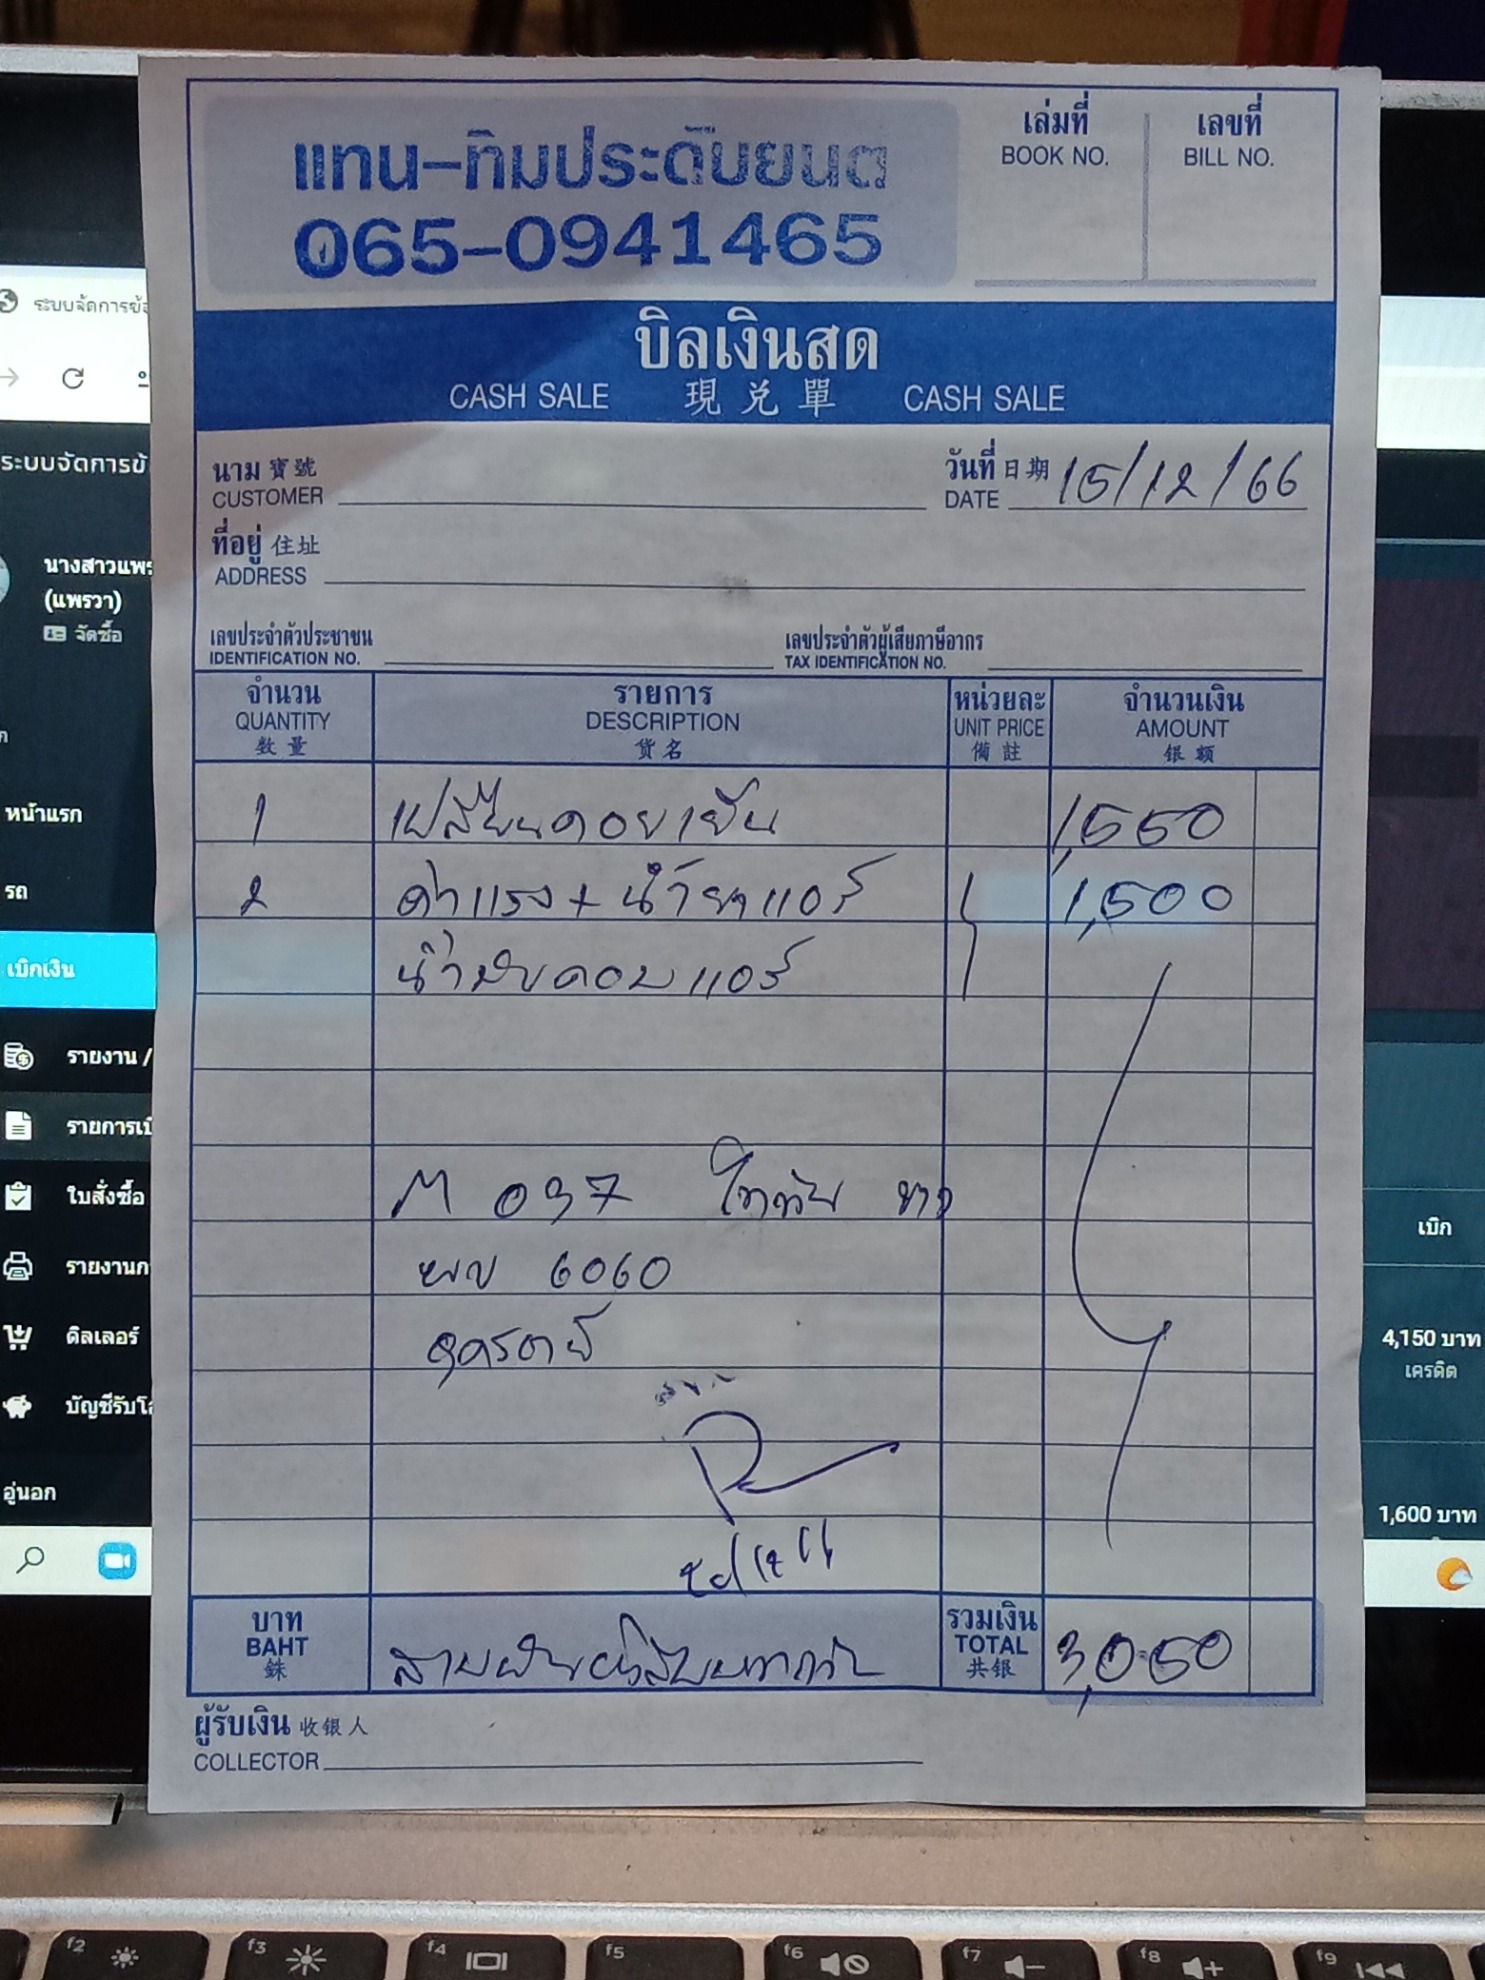 แทน-ทิมประดับยนต
065-0941465
เล่มที่
BOOK NO.
เลขที่
BILL NO.
บิลเงินสด
CASH SALE 現兌單 CASH SALE
นาม 寶號
CUSTOMER
วันที่ 日期
DATE 15/12/66
ที่อยู่ 住址
ADDRESS
เลขประจำตัวประชาชน
IDENTIFICATION NO.
เลขประจำตัวผู้เสียภาษีอากร
TAX IDENTIFICATION NO.
จำนวน
QUANTITY
数量
รายการ
DESCRIPTION
貨名
หน่วยละ
UNIT PRICE
備註
จำนวนเงิน
AMOUNT
银额
1 เปลี่ยนคอยเย็น 1,550
2 ค่าแรง + น้ำยาแอร์ 1,500
น้ำมันคอมแอร์
M 037 ไททัน ขาว
ผข 6060
อุครตย์
บาท
BAHT
銖
สามพันห้าสิบบาทถ้วน
รวมเงิน
TOTAL
共银
3,050
ผู้รับเงิน 收银人
COLLECTOR
ระบบจัดการข้อ
ระบบจัดการข้
นางสาวแพร
(แพรวา)
จัดซื้อ
หน้าแรก
รถ
เบิกเงิน
รายงาน /
รายการเบิ
ใบสั่งซื้อ
รายงานก
ดีลเลอร์
บัญชีรับโ
อู่นอก
เบิก
4,150 บาท
เครดิต
1,600 บาท
f2
f3
f4
f5
f6
f7
f8
f9